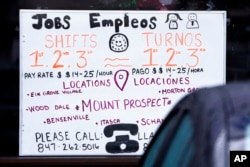 Jobs Empleos
SHIFTS TURNOS
1st 2nd 3rd 1st 2nd 3rd
PAY RATE $ $14-25/HOUR PAGO $ $14-25/HORA
LOCATIONS LOCACIONES
ELK GROVE VILLAGE MORTON
WOOD DALE MOUNT PROSPECT
BENSENVILLE ITASCA SCHA
PLEASE CALL: LLA
847-262-5010 84
AP